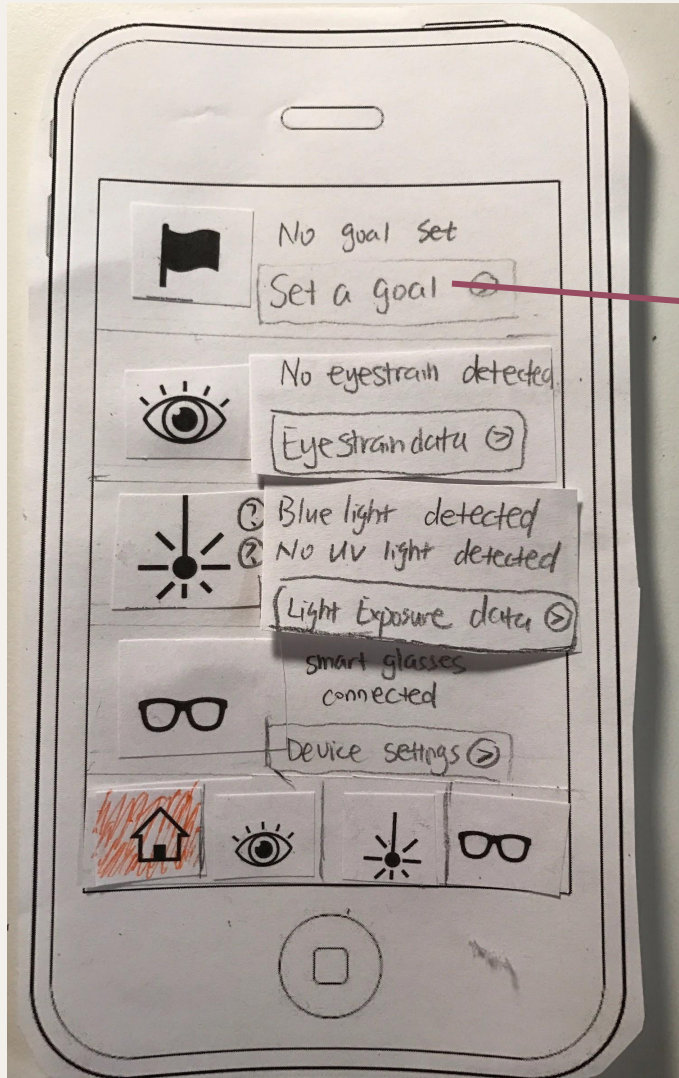 No goal set
Set a goal >
No eyestrain detected
Eyestrain data >
? Blue light detected
? No UV light detected
Light Exposure data >
smart glasses
connected
Device settings >